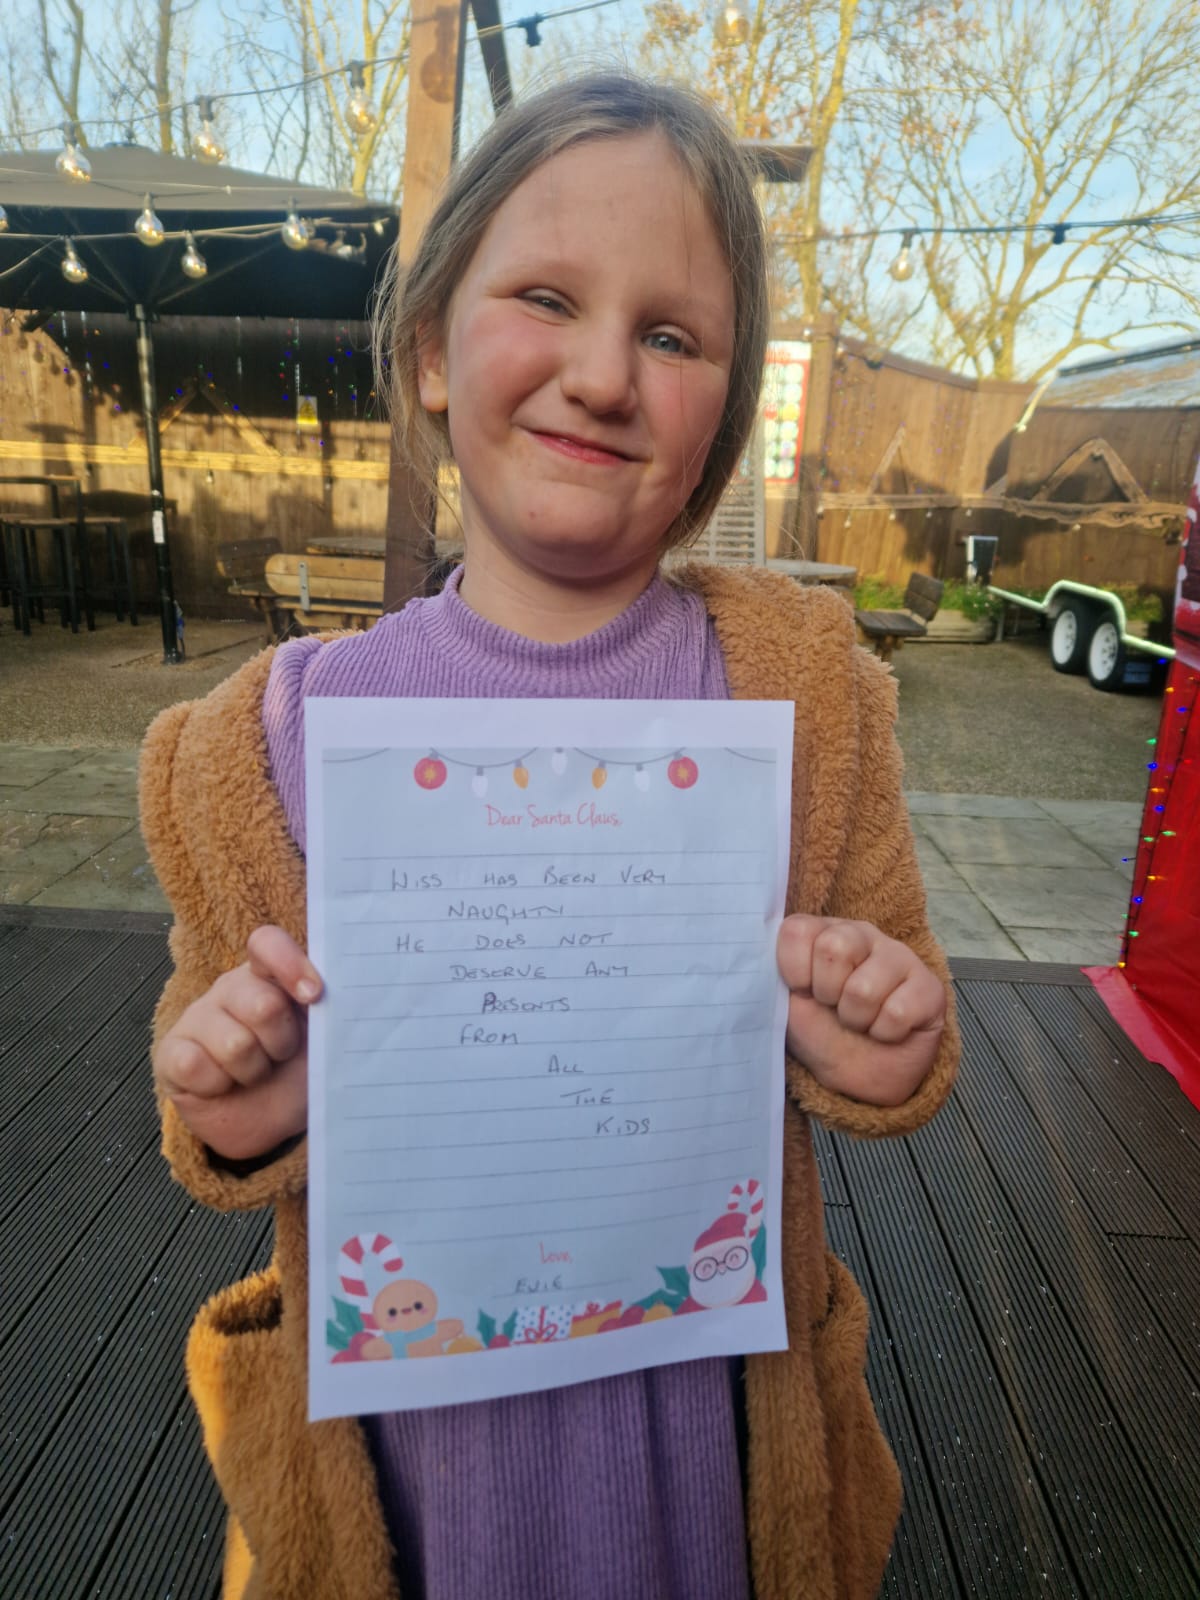 Dear Santa Claus,
WISS HAS BEEN VERY
NAUGHTY
HE DOES NOT
DESERVE ANY
PRESENTS
FROM
ALL
THE
KIDS
Love,
EVIE